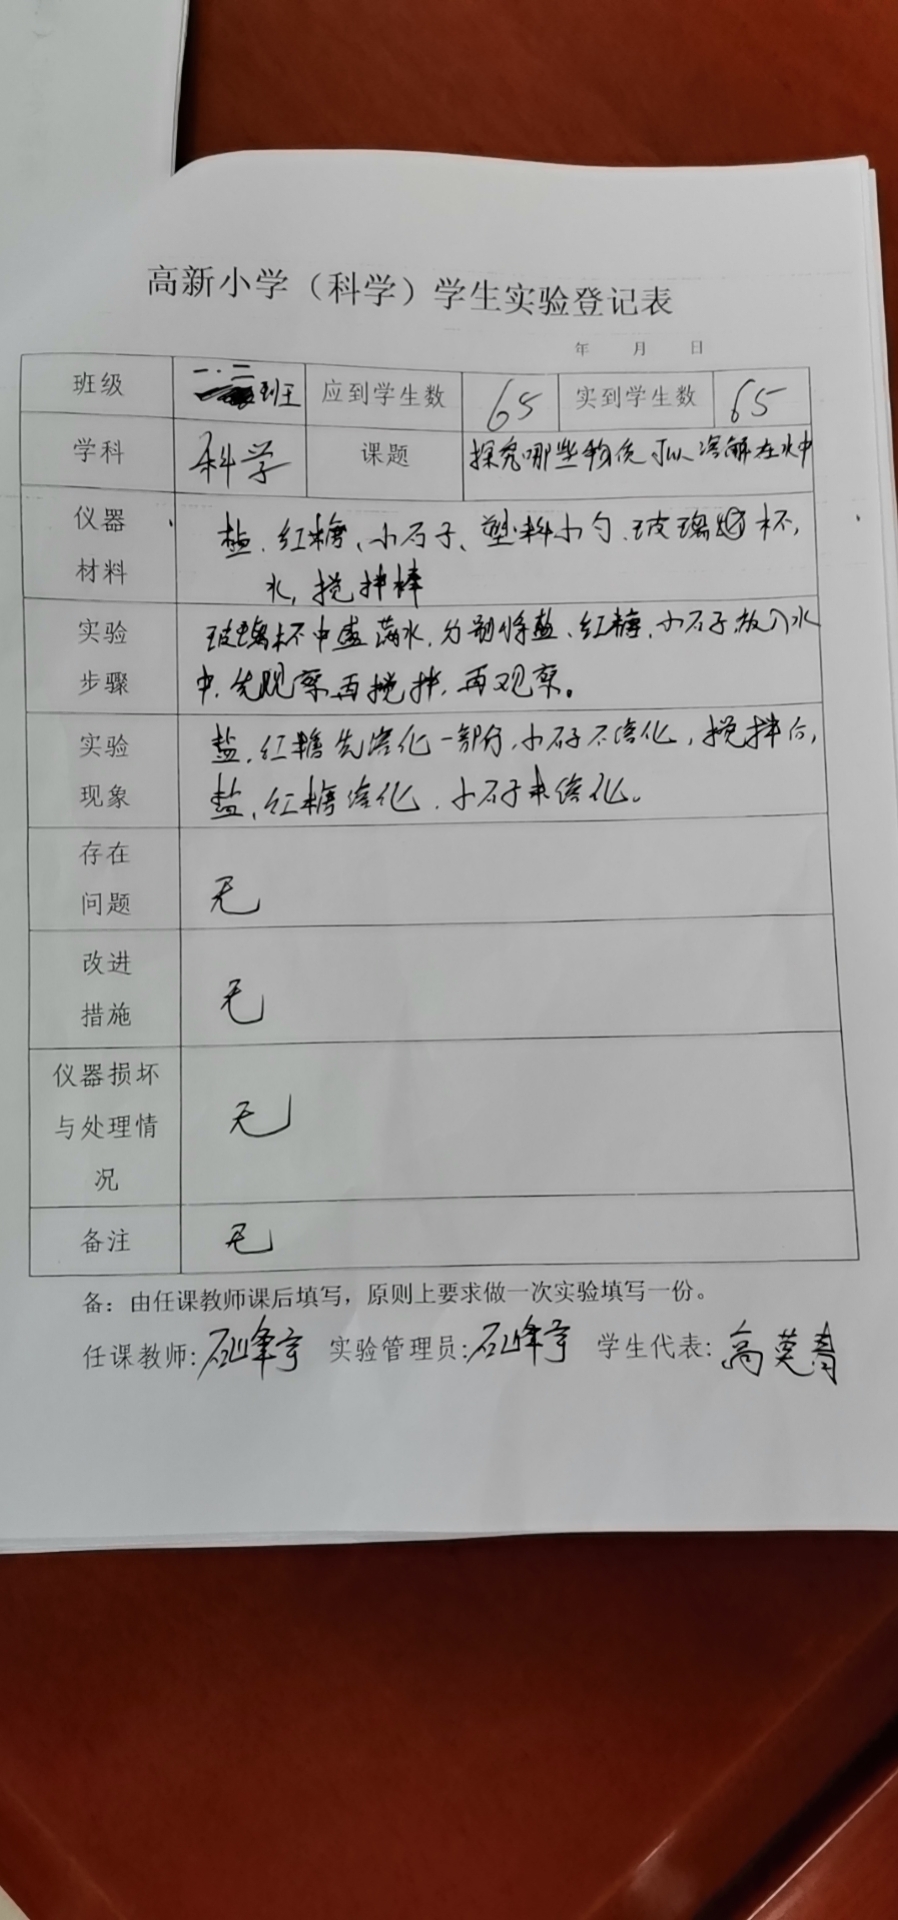 高新小学（科学）学生实验登记表
年 月 日
班级 一.二 班 应到学生数 65 实到学生数 65
学科 科学 课题 探究哪些物质可以溶解在水中
仪器材料 盐、红糖、小石子、塑料小勺、玻璃杯,
水, 搅拌棒
实验步骤 玻璃杯中盛满水, 分别将盐、红糖、小石子放入水
中, 先观察再搅拌, 再观察。
实验现象 盐、红糖先溶化一部分, 小石子不溶化, 搅拌后,
盐、红糖溶化, 小石子未溶化。
存在问题 无
改进措施 无
仪器损坏与处理情况 无
备注 无
备：由任课教师课后填写，原则上要求做一次实验填写一份。
任课教师: 实验管理员: 学生代表: 高